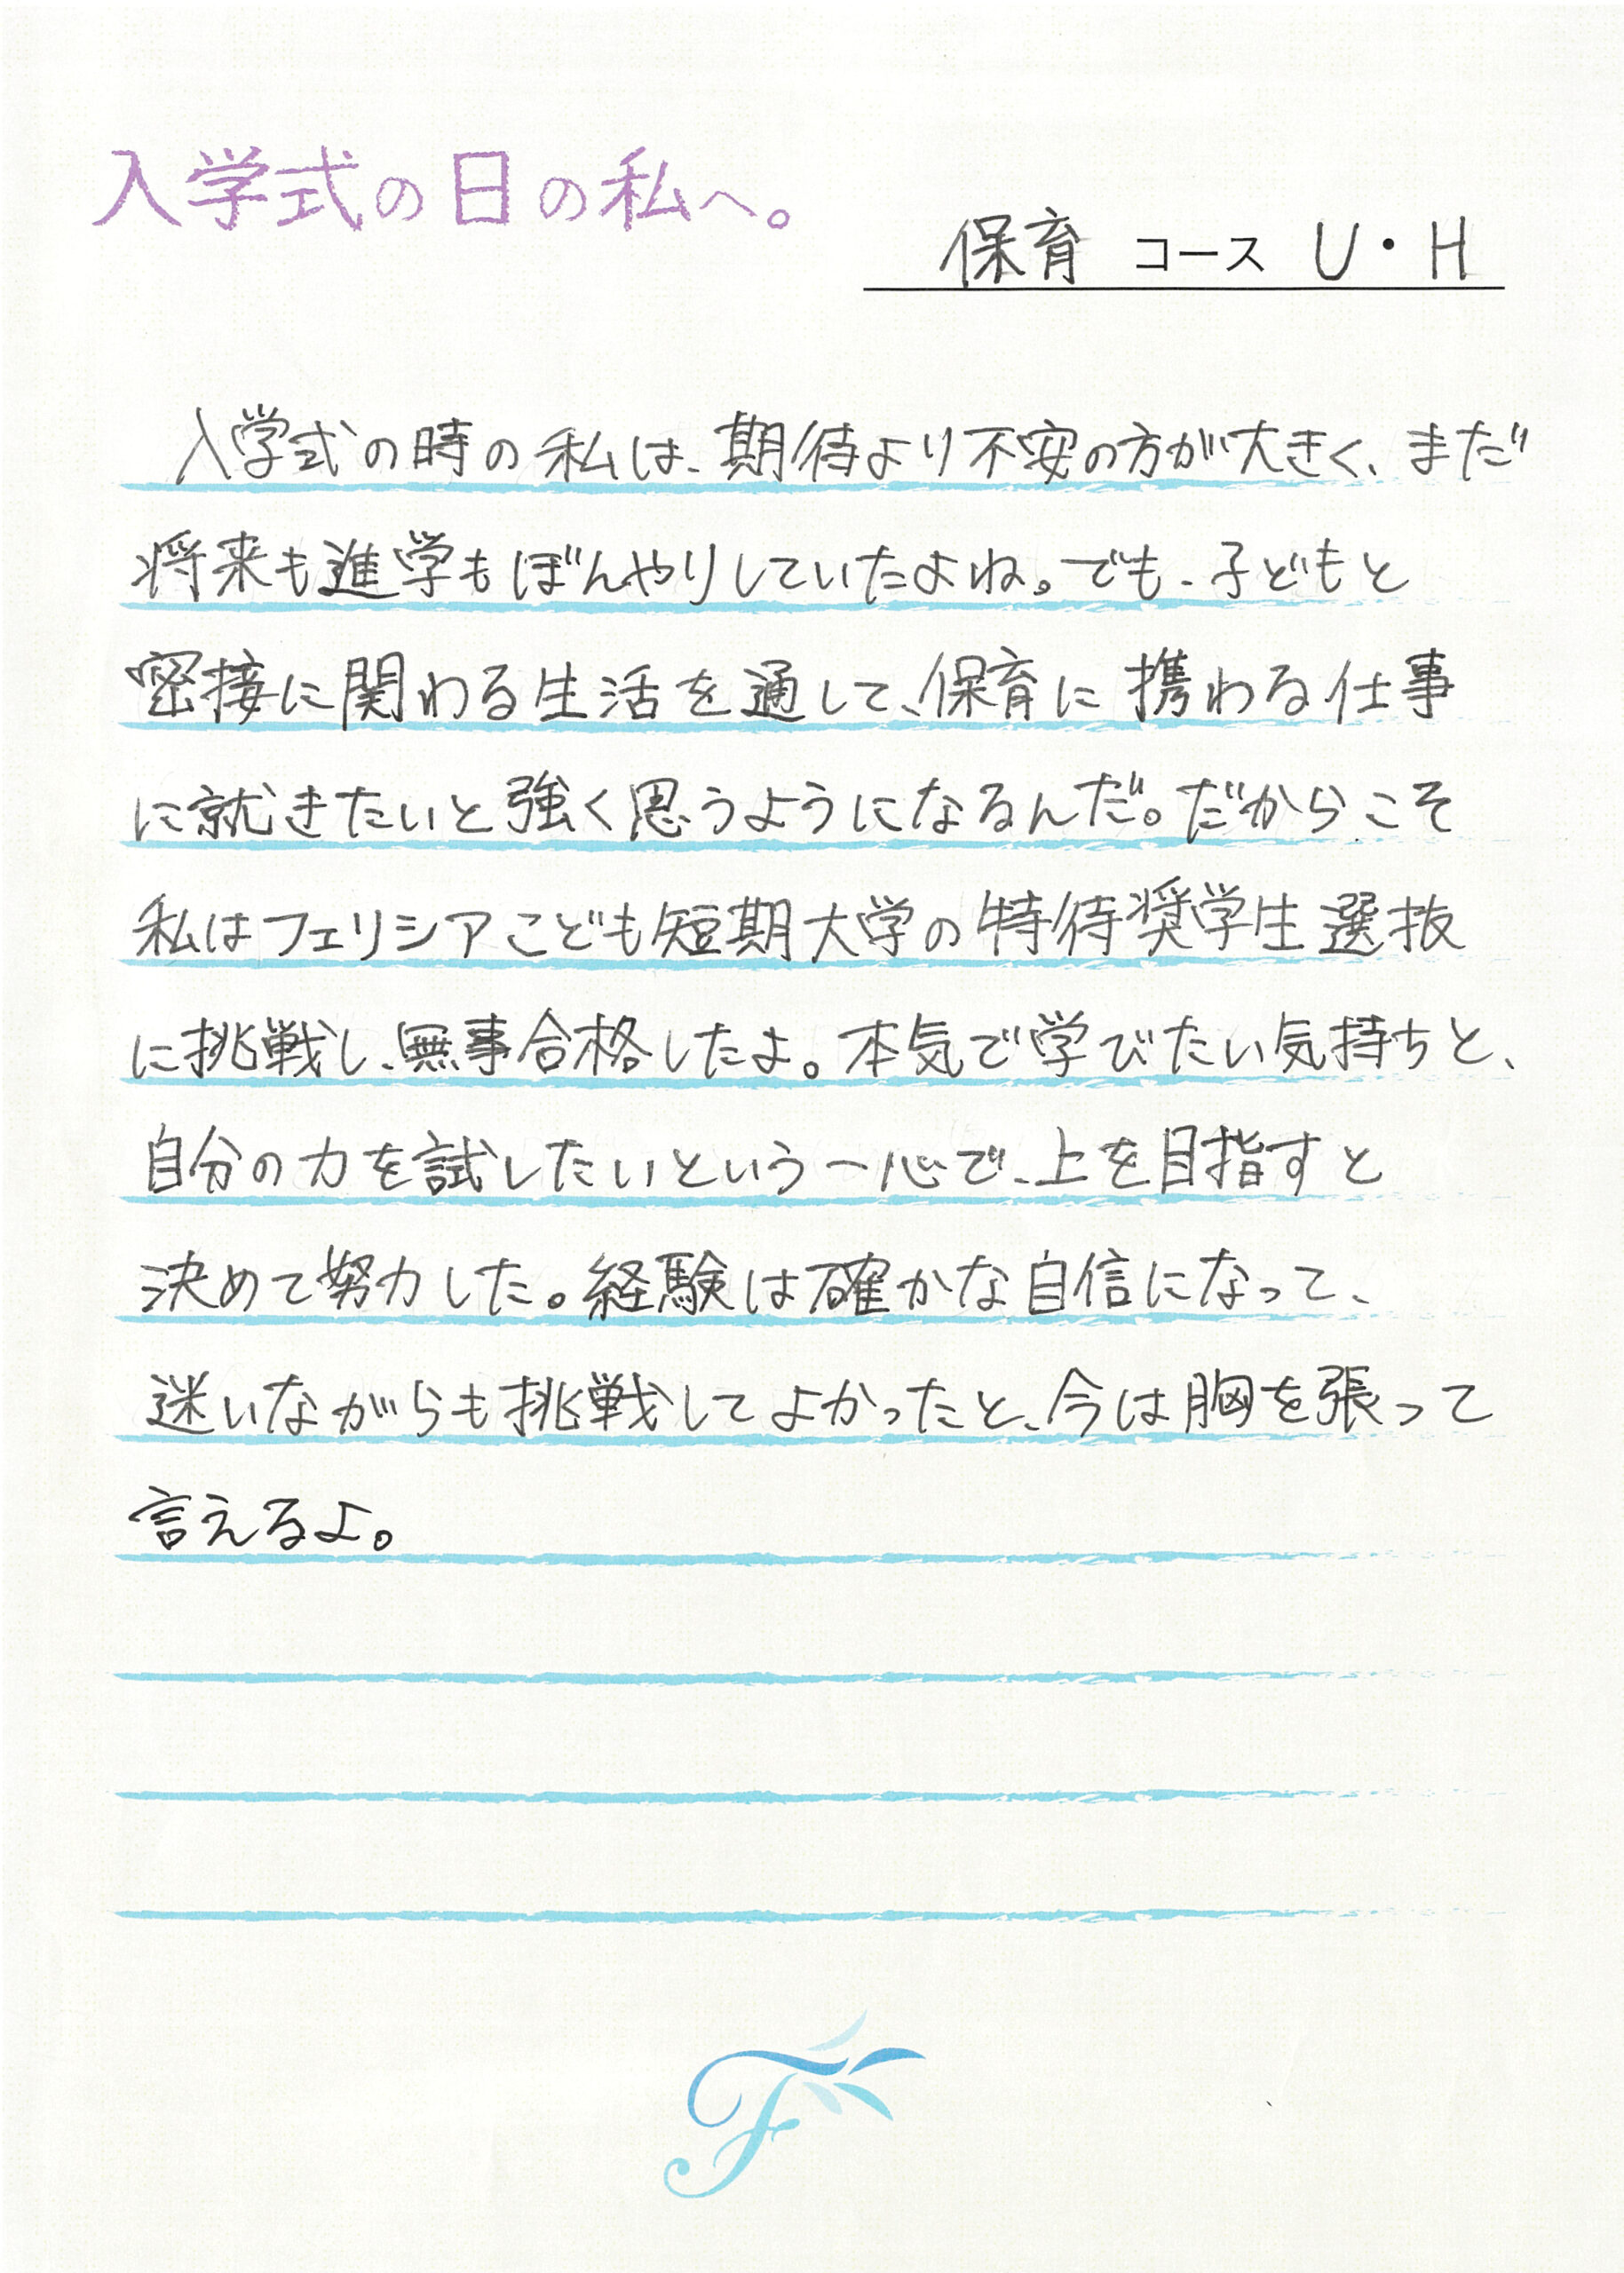 入学式の日の私へ。
保育 コース U・H
入学式の時の私は、期待より不安の方が大きく、まだ
将来も進学もぼんやりしていたよね。でも、子どもと
密接に関わる生活を通して、保育に携わる仕事
に就きたいと強く思うようになるんだ。だからこそ
私はフェリシアこども短期大学の特待奨学生選抜
に挑戦し、無事合格したよ。本気で学びたい気持ちと、
自分の力を試したいという一心で、上を目指すと
決めて努力した。経験は確かな自信になって、
迷いながらも挑戦してよかったと、今は胸を張って
言えるよ。
F